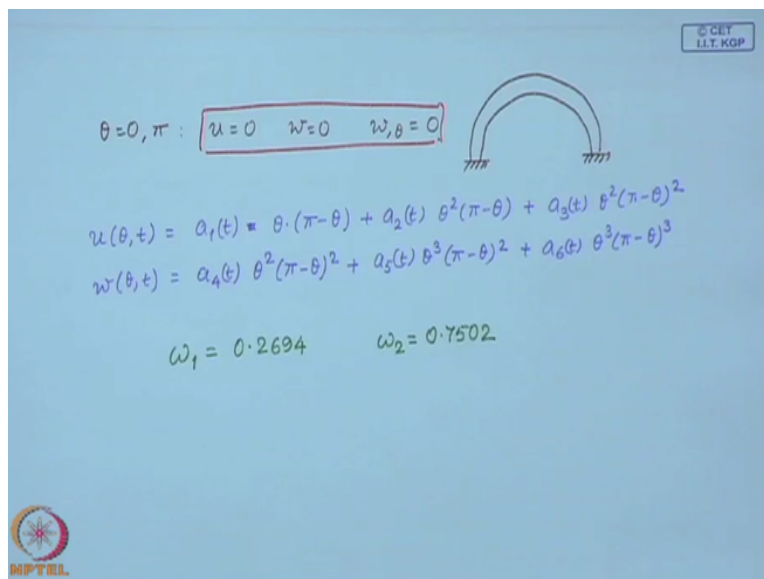 © CET
I.I.T. KGP
θ=0, π : u=0 w=0 w,θ = 0
u(θ,t) = a₁(t) θ·(π-θ) + a₂(t) θ²(π-θ) + a₃(t) θ²(π-θ)²
w(θ,t) = a₄(t) θ²(π-θ)² + a₅(t) θ³(π-θ)² + a₆(t) θ³(π-θ)³
ω₁ = 0.2694 ω₂ = 0.7502
NPTEL